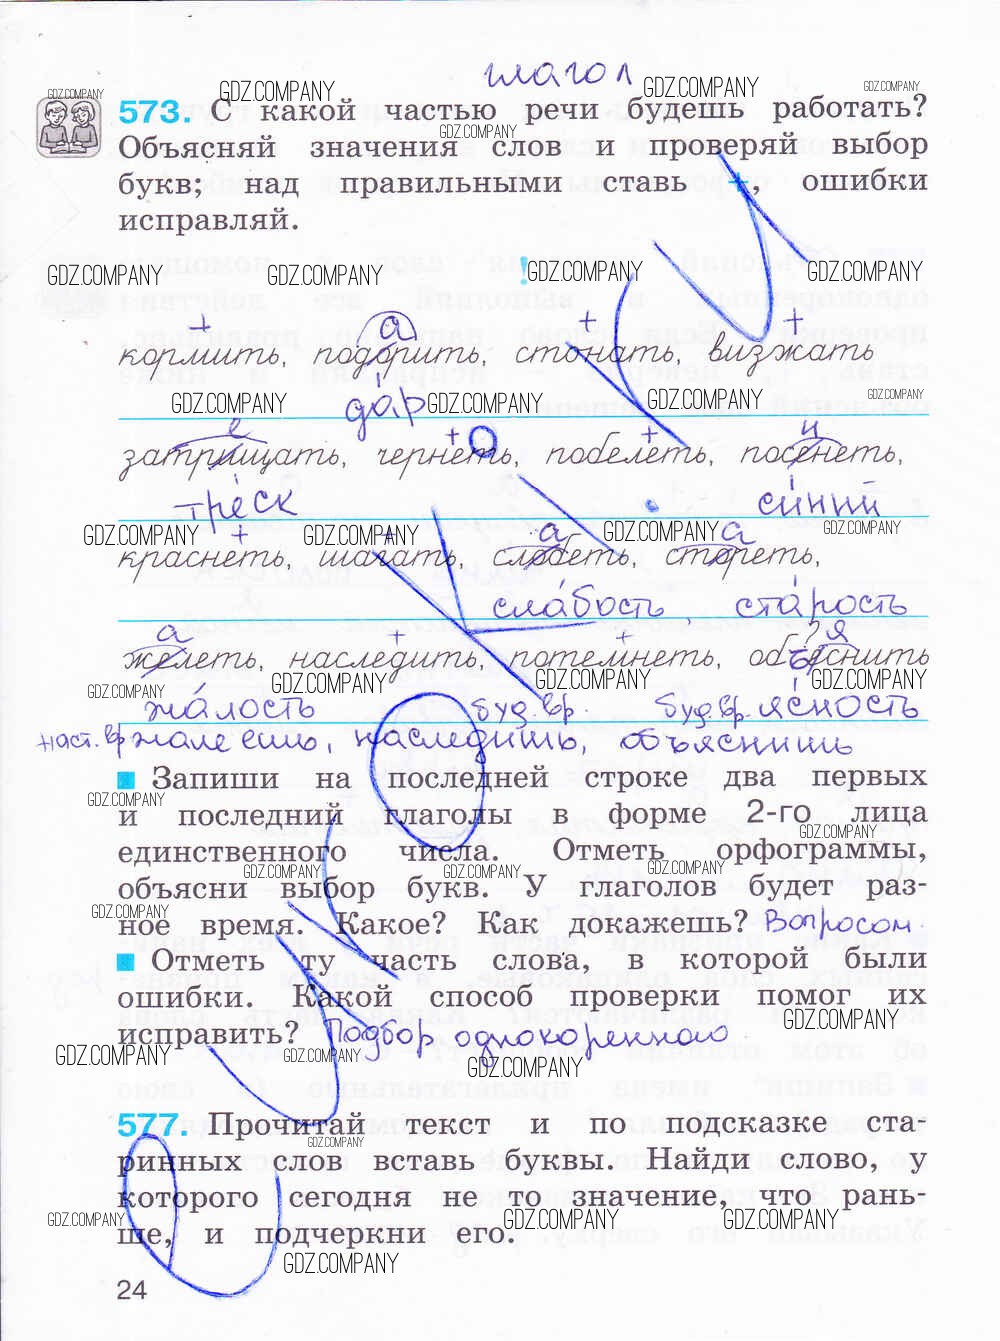 глагол
GDZ.COMPANY GDZ.COMPANY GDZ.COMPANY GDZ.COMPANY
573. С какой частью речи будешь работать?
GDZ.COMPANY
Объясняй значения слов и проверяй выбор
букв; над правильными ставь +, ошибки
исправляй.
GDZ.COMPANY GDZ.COMPANY ! GDZ.COMPANY GDZ.COMPANY
+ а + +
кормить, подорить, стонать, визжать
GDZ.COMPANY да́р GDZ.COMPANY GDZ.COMPANY GDZ.COMPANY
е + + и
затрищать, чернеть, побелеть, посенеть,
тре́ск си́ний
GDZ.COMPANY + GDZ.COMPANY + а GDZ.COMPANY а GDZ.COMPANY
краснеть, шагать, слобеть, стореть,
сла́бость, ста́рость
а + + я
желеть, наследить, потемнеть, объеснить
GDZ.COMPANY GDZ.COMPANY GDZ.COMPANY GDZ.COMPANY
жа́лость буд.вр. буд.вр. я́сность
наст.вр жалеешь, наследишь, объяснишь
Запиши на последней строке два первых
GDZ.COMPANY
и последний глаголы в форме 2-го лица
GDZ.COMPANY
единственного числа. Отметь орфограммы,
GDZ.COMPANY GDZ.COMPANY GDZ.COMPANY
объясни выбор букв. У глаголов будет раз-
GDZ.COMPANY
ное время. Какое? Как докажешь? Вопросом.
Отметь ту часть слова, в которой были
ошибки. Какой способ проверки помог их
GDZ.COMPANY
исправить? Подбор однокоренного
GDZ.COMPANY GDZ.COMPANY GDZ.COMPANY
577. Прочитай текст и по подсказке ста-
GDZ.COMPANY
ринных слов вставь буквы. Найди слово, у
которого сегодня не то значение, что рань-
GDZ.COMPANY GDZ.COMPANY GDZ.COMPANY
ше, и подчеркни его.
GDZ.COMPANY
24